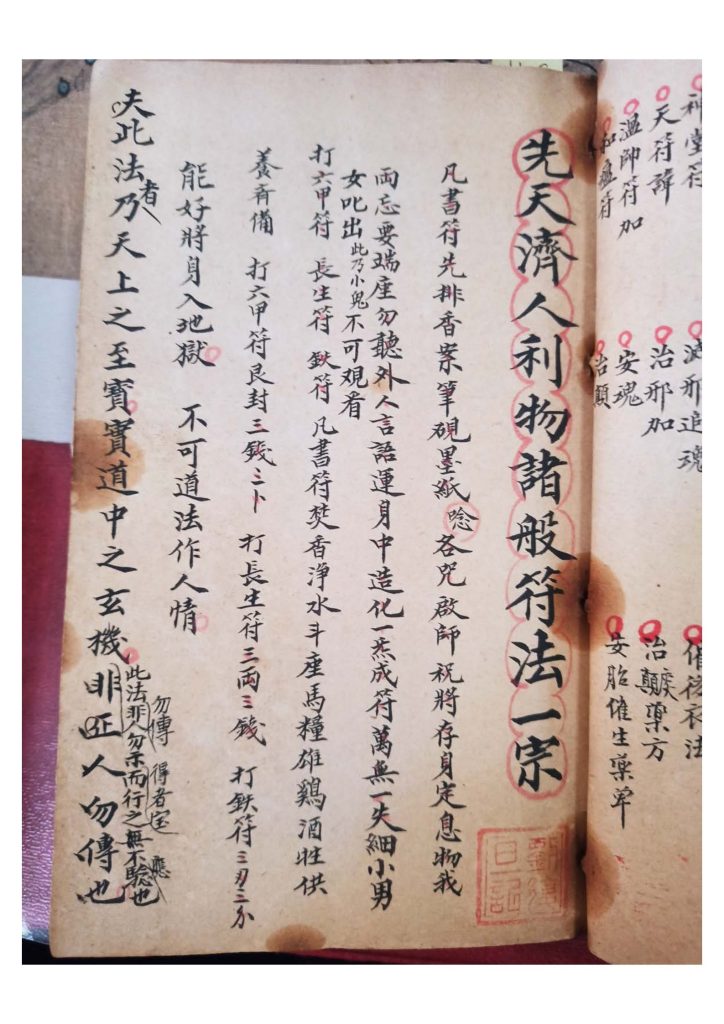 神堂符
天符諱
溫師符加
和瘟符
治邪加
安魂
治顛
治顛藥方
安胎催生藥單
先天濟人利物諸般符法一宗
凡書符先排香案筆硯墨紙唸各咒啟師祝將存身定息物我
両忘要端座勿聽外人言語運身中造化一炁成符萬無一失細小男
女叱出此乃小鬼不可观看
打六甲符 長生符 鈇符 凡書符焚香淨水斗座馬糧雄鷄酒牲供
養斉備 打六甲符艮封三錢三卜 打長生符三両三錢 打鈇符三刃三分
能好將身入地獄 不可道法作人情
夫此法者乃天上之至寳寳道中之玄機非匹人勿傳也
此法非人勿示而行之無不騐也
勿傳 得者宝 應